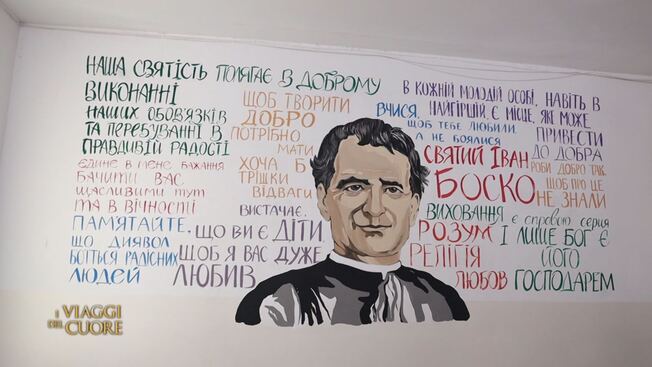 НАША СВЯТІСТЬ ПОЛЯГАЄ В ДОБРОМУ
ВИКОНАННІ
НАШИХ ОБОВ'ЯЗКІВ
ТА ПЕРЕБУВАННІ В
ПРАВДИВІЙ РАДОСТІ
ЄДИНЕ В МЕНЕ БАЖАННЯ
БАЧИТИ ВАС
ЩАСЛИВИМИ ТУТ
ТА В ВІЧНОСТІ
ПАМ'ЯТАЙТЕ,
ЩО ДИЯВОЛ
БОЇТЬСЯ РАДІСНИХ
ЛЮДЕЙ
ЩОБ ТВОРИТИ
ДОБРО
ПОТРІБНО
МАТИ
ХОЧА Б
ТРІШКИ
ВІДВАГИ
ВИСТАЧАЄ,
ЩО ВИ Є ДІТИ,
ЩОБ Я ВАС ДУЖЕ
ЛЮБИВ
В КОЖНІЙ МОЛОДІЙ ОСОБІ, НАВІТЬ В
НАЙГІРШІЙ Є МІСЦЕ, ЯКЕ МОЖЕ
ПРИВЕСТИ
ДО ДОБРА
ВЧИСЯ,
ЩОБ ТЕБЕ ЛЮБИЛИ,
А НЕ БОЯЛИСЯ
СВЯТИЙ ІВАН
БОСКО
РОБИ ДОБРО ТАК,
ЩОБ ПРО ЦЕ
НЕ ЗНАЛИ
ВИХОВАННЯ Є СПРАВОЮ СЕРЦЯ
І ЛИШЕ БОГ Є
ЙОГО
ГОСПОДАРЕМ
РОЗУМ
РЕЛІГІЯ
ЛЮБОВ
I VIAGGI
DEL CUORE